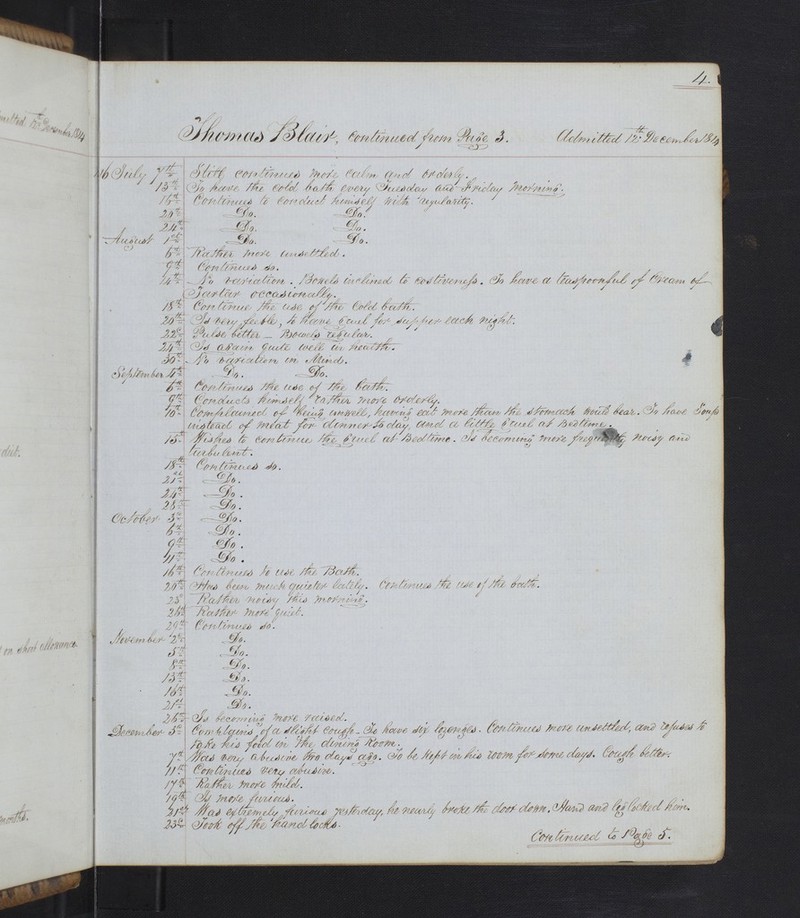 4.
Thomas Blair, continued from Page 3. Admitted 12th December 1814
16 July 7th Still continues more calm and orderly.
13th To have the cold bath every Tuesday and Friday morning.
16th Continues to conduct himself with regularity.
20th Do. Do.
24th Do. Do.
August 1st Do. Do.
6th Rather more unsettled.
9th Continues so.
14th No variation. Bowels inclined to costiveness. To have a teaspoonful of Cream of
Tartar occasionally.
18th Continue the use of the Cold bath.
20th Is very feeble, to have gruel for supper each night.
22d Pulse better – Bowels regular.
24th Is again quite well in health.
30th No variation in Mind.
September 4th Do. Do.
6th Continues the use of the bath.
9th Conducts himself rather more orderly.
10th Complained of being unwell, having eat more than the stomach would bear. To have Soup
instead of meat for dinner to day, and a little gruel at Bedtime.
15th Wishes to continue the gruel at Bedtime. Is becoming more frequently noisy and
turbulent.
18th Continues so.
21st Do.
24th Do.
28th Do.
October 3d Do.
6th Do.
9th Do.
11th Do.
16th Continues to use the Bath.
20th Has been much quieter lately. Continues the use of the bath.
23d Rather noisy this morning.
26th Rather more quiet.
29th Continues so.
November 2d Do.
5th Do.
8th Do.
13th Do.
16th Do.
21st Do.
26th Is becoming more raised.
December 3d Complains of a slight cough – To have six lozenges. Continues more unsettled, and refuses to
take his food in the dining Room.
7th Was very abusive two days ago. To be kept in his room for some days. Cough better.
11th Continues very abusive.
17th Rather more mild.
19th Is more furious.
21st Was extremely furious yesterday, he nearly broke the door down. Hand and leg locked him.
23d Took off the hand locks.
Continued to Page 5.
12th December 1814
diet.
on short allowance
months.